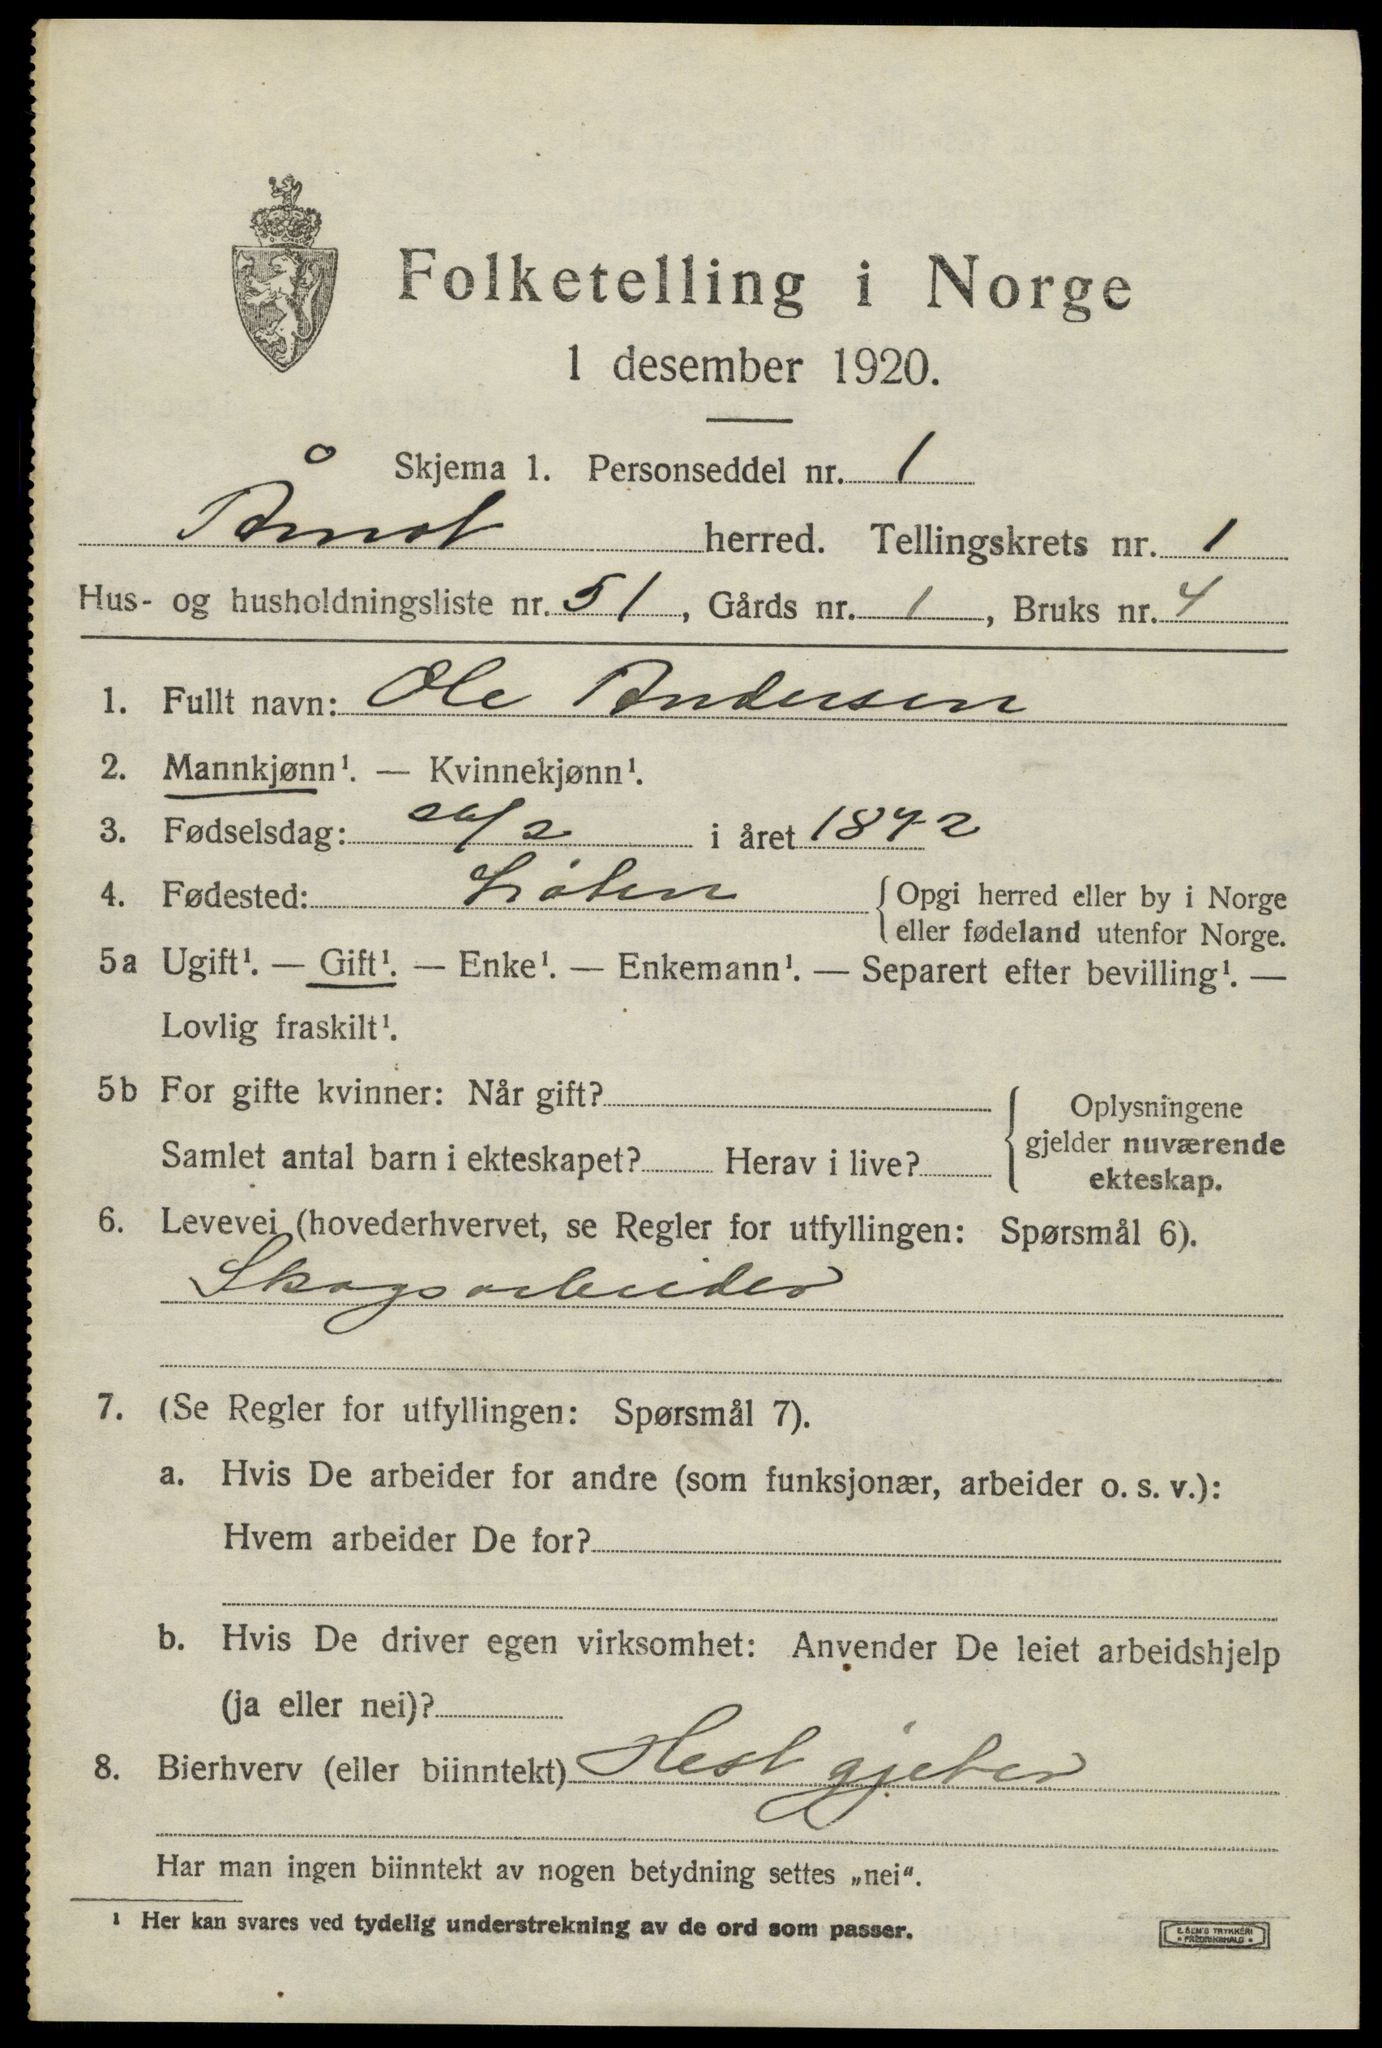 Folketelling i Norge
1 desember 1920.
Skjema 1. Personseddel nr. 1
Åmot herred. Tellingskrets nr. 1
Hus- og husholdningsliste nr. 51, Gårds nr. 1, Bruks nr. 4
1. Fullt navn: Ole Andersen
2. Mannkjønn¹. — Kvinnekjønn¹.
3. Fødselsdag: 26/2 i året 1872
4. Fødested: Løten { Opgi herred eller by i Norge
eller fødeland utenfor Norge.
5a Ugift¹. — Gift¹. — Enke¹. — Enkemann¹. — Separert efter bevilling¹. —
Lovlig fraskilt¹.
5b For gifte kvinner: Når gift? { Oplysningene
gjelder nuværende
Samlet antal barn i ekteskapet? Herav i live?
ekteskap.
6. Levevei (hovederhvervet, se Regler for utfyllingen: Spørsmål 6).
Skogsarbeider
7. (Se Regler for utfyllingen: Spørsmål 7).
a. Hvis De arbeider for andre (som funksjonær, arbeider o. s. v.):
Hvem arbeider De for?
b. Hvis De driver egen virksomhet: Anvender De leiet arbeidshjelp
(ja eller nei)?
8. Bierhverv (eller biinntekt) Hest gjeter
Har man ingen biinntekt av nogen betydning settes „nei“.
¹ Her kan svares ved tydelig understrekning av de ord som passer.
E. SEM'S TRYKKERI
FREDRIKSHALD